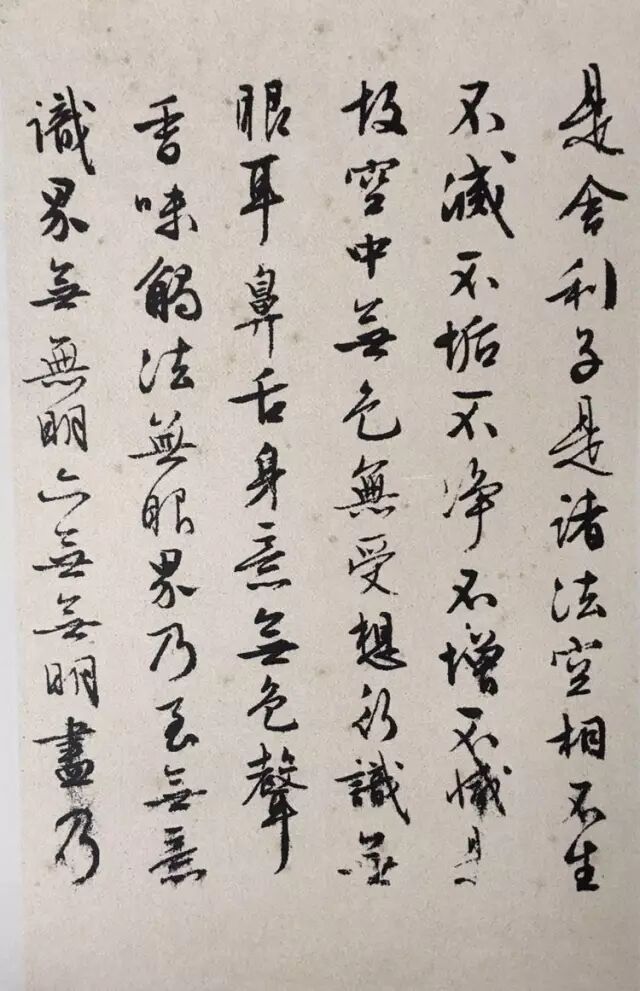 是舍利子是諸法空相不生
不滅不垢不净不增不減是
故空中無色無受想行識無
眼耳鼻舌身意無色聲
香味觸法無眼界乃至無意
識界無無明亦無無明盡乃